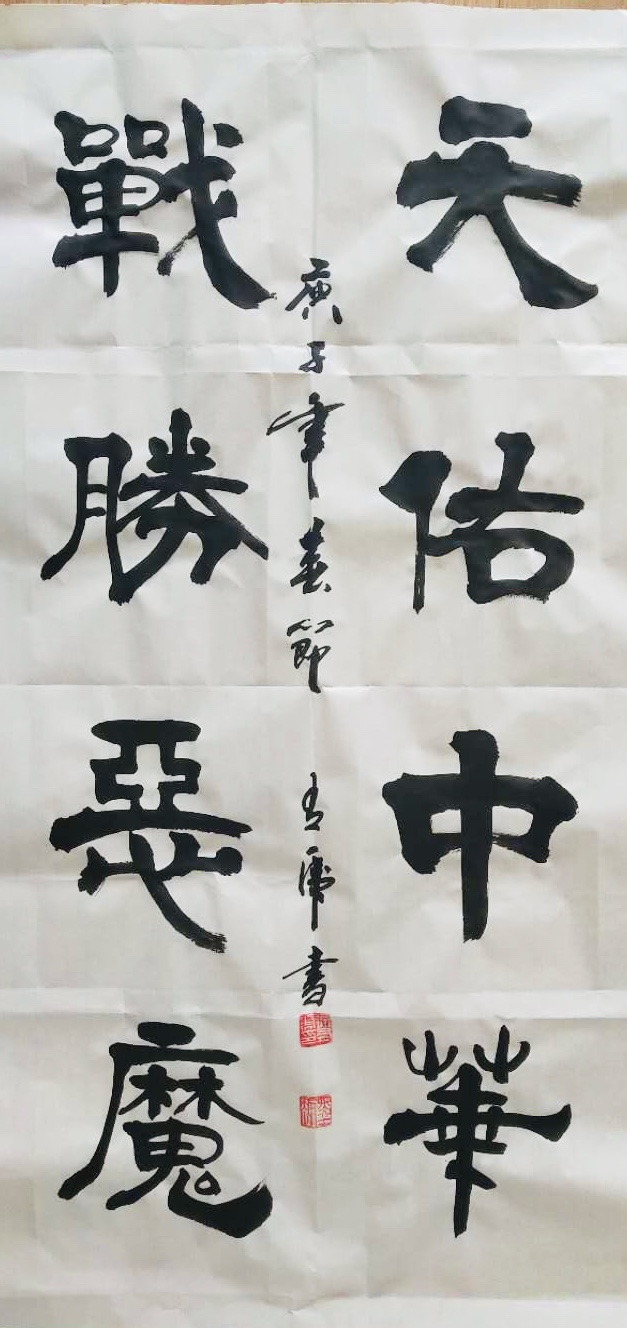 天佑中華
戰勝惡魔
庚子年春節
書